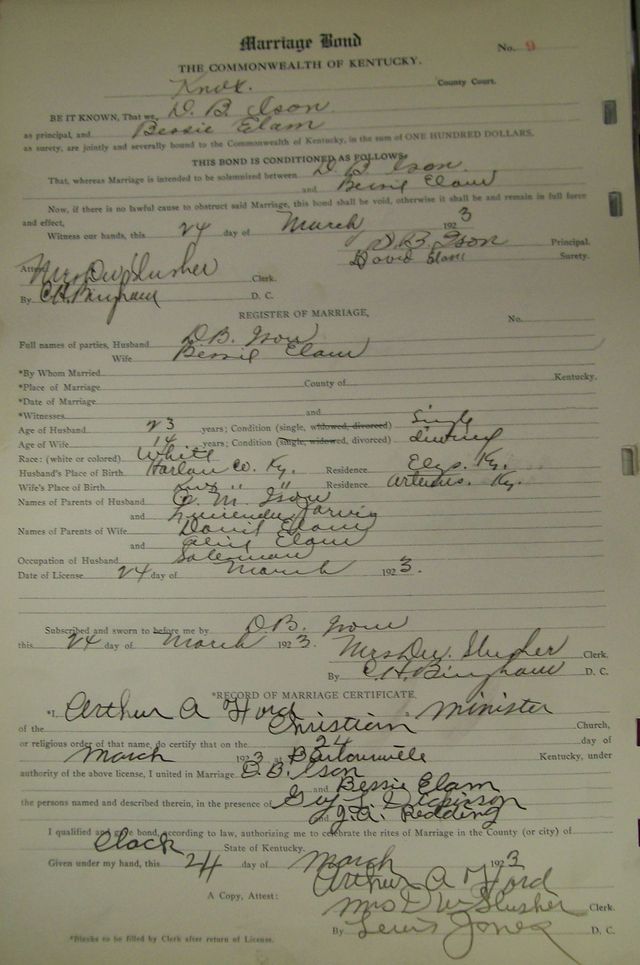 Marriage Bond
No. 9
THE COMMONWEALTH OF KENTUCKY.
Knox. County Court.
BE IT KNOWN, That we, D. B. Ison
as principal, and Bessie Elam
as surety, are jointly and severally bound to the Commonwealth of Kentucky, in the sum of ONE HUNDRED DOLLARS.
THIS BOND IS CONDITIONED AS FOLLOWS:
That, whereas Marriage is intended to be solemnized between D. B. Ison
and Bessie Elam
Now, if there is no lawful cause to obstruct said Marriage, this bond shall be void, otherwise it shall be and remain in full force
and effect,
Witness our hands, this 24 day of March 1923
D. B. Ison Principal.
David Elam Surety.
Attest Mrs. D.W. Slusher Clerk.
By C.H. Bingham D. C.
REGISTER OF MARRIAGE,
No.
Full names of parties, Husband D.B. Ison
Wife Bessie Elam
*By Whom Married
*Place of Marriage County of Kentucky.
*Date of Marriage
*Witnesses and
Age of Husband 23 years; Condition (single, widowed, divorced) Single
Age of Wife 14 years; Condition (single, widowed, divorced)
Race: (white or colored) White
Husband's Place of Birth Harlan Co. Ky. Residence Elys. Ky.
Wife's Place of Birth Knox " " Residence Artemus. Ky.
Names of Parents of Husband M. Ison
and Jarvis
Names of Parents of Wife David Elam
and Elam
Occupation of Husband Salesman
Date of License 24 day of March 1923.
Subscribed and sworn to before me by D.B. Ison
this 24 day of March 1923.
Mrs D.W. Slusher Clerk.
By C.H. Bingham D. C.
*RECORD OF MARRIAGE CERTIFICATE,
*I, Arthur A Ford
of the Christian Minister Church,
or religious order of that name, do certify that on the 24 day of
March 1923 at Barbourville Kentucky, under
authority of the above license, I united in Marriage D.B. Ison
and Bessie Elam
the persons named and described therein, in the presence of Guy L. Dickinson
and J.A. Redding
I qualified and gave bond, according to law, authorizing me to celebrate the rites of Marriage in the County (or city) of
Clark State of Kentucky.
Given under my hand, this 24 day of March 1923
Arthur A Ford
A Copy, Attest: Mrs D W Slusher Clerk.
By Lewis Jones D. C.
*Blanks to be filled by Clerk after return of License.